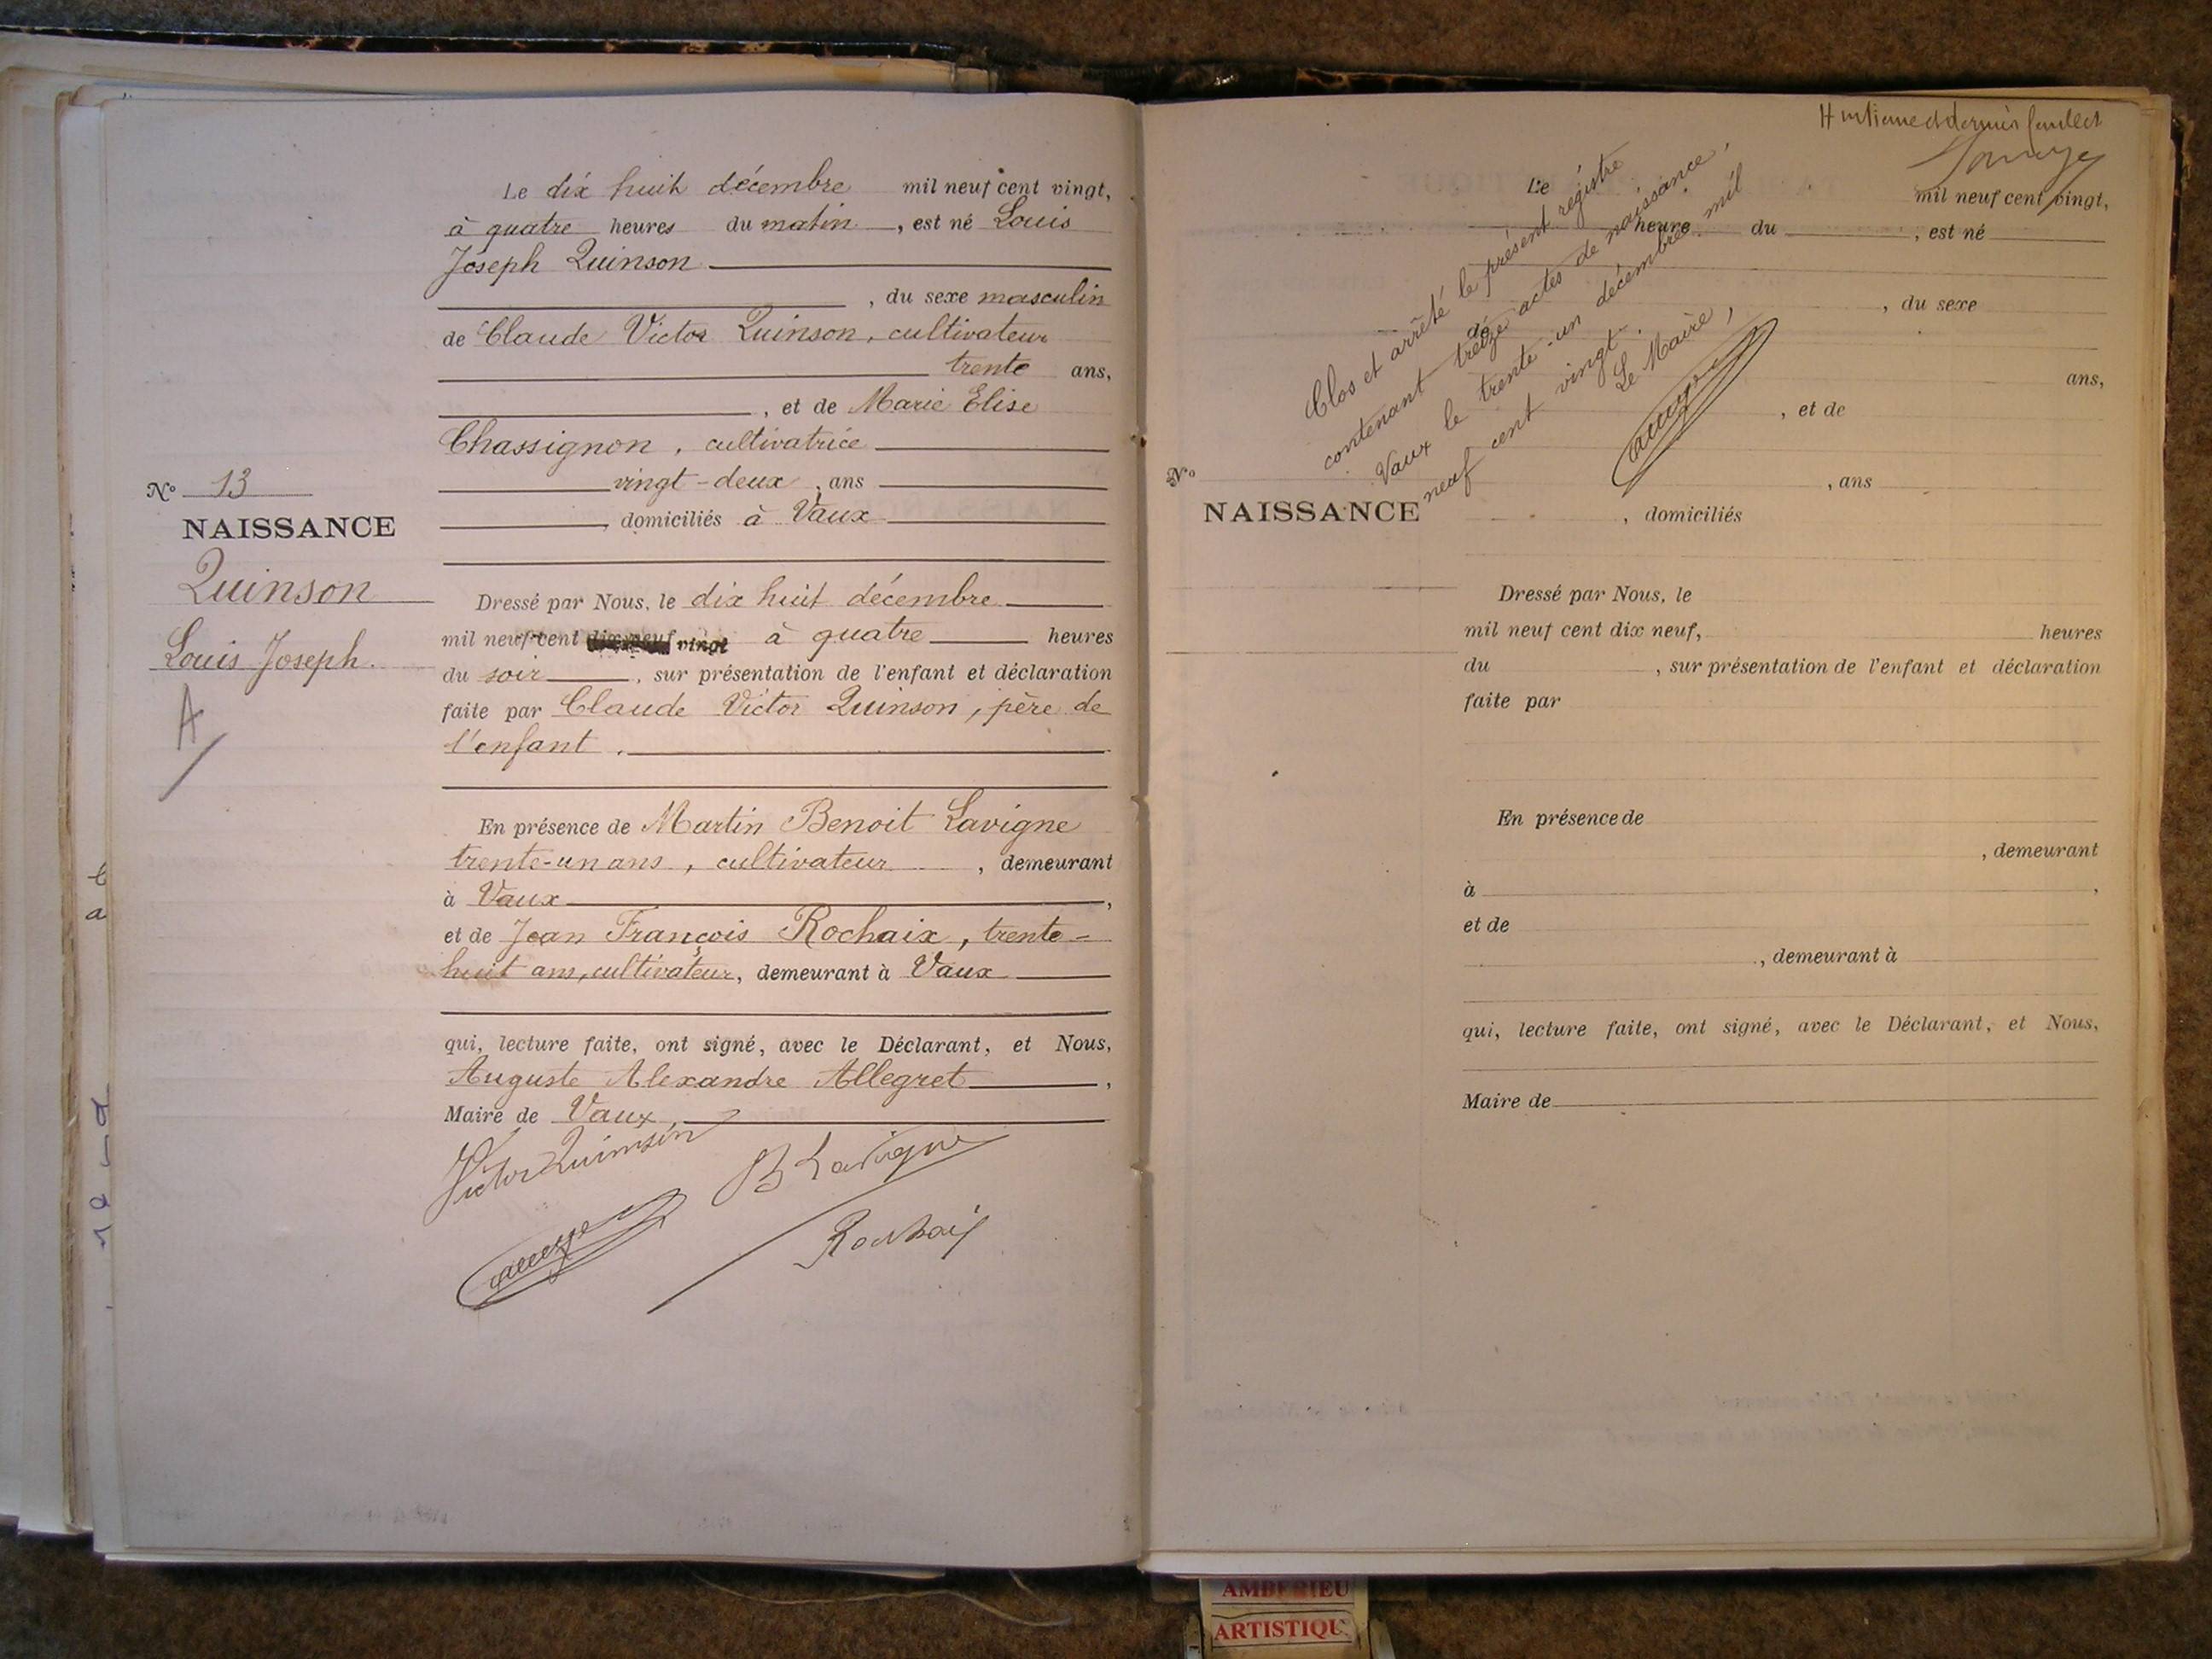 Le dix huit décembre mil neuf cent vingt,
à quatre heures du matin, est né Louis
Joseph Quinson
, du sexe masculin
de Claude Victor Quinson, cultivateur
trente ans,
, et de Marie Elise
Chassignon, cultivatrice
vingt-deux, ans
, domiciliés à Vaux
N° 13
NAISSANCE
Quinson
Louis Joseph.
A
Dressé par Nous, le dix huit décembre
mil neuf cent dix neuf vingt à quatre heures
du soir, sur présentation de l'enfant et déclaration
faite par Claude Victor Quinson, père de
l'enfant.
En présence de Martin Benoit Lavigne
trente-un ans, cultivateur, demeurant
à Vaux,
et de Jean François Rochaix, trente-
huit ans, cultivateur, demeurant à Vaux
qui, lecture faite, ont signé, avec le Déclarant, et Nous,
Auguste Alexandre Allegret,
Maire de Vaux,
Victor Quinson
B Lavigne
Rochaix
et dernier feuillet
Le mil neuf cent vingt,
heure du , est né
, du sexe
ans,
, et de
, ans
, domiciliés
Clos et arrêté le présent registre
contenant treize actes de naissance,
Vaux le trente-un décembre mil
neuf cent vingt.
Le Maire,
N°
NAISSANCE
Dressé par Nous, le
mil neuf cent dix neuf, heures
du , sur présentation de l'enfant et déclaration
faite par
En présence de
, demeurant
à ,
et de
, demeurant à
qui, lecture faite, ont signé, avec le Déclarant, et Nous,
Maire de
AMBERIEU
ARTISTIQU